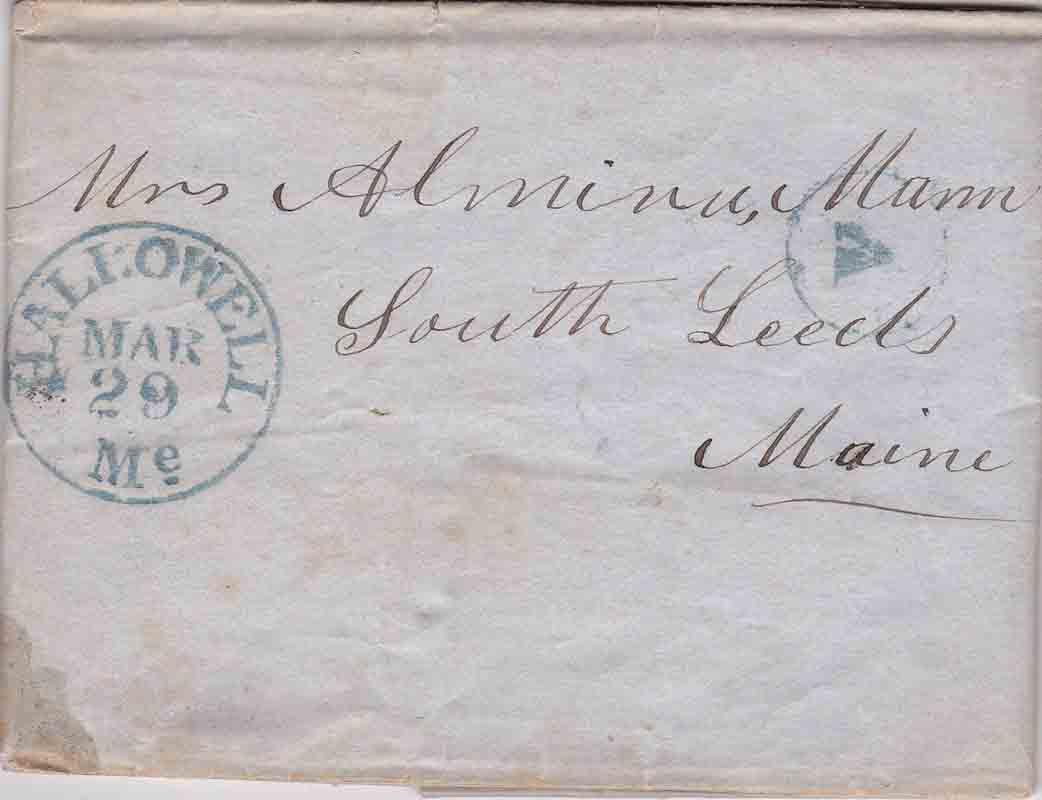 Mrs Almina, Mann
South Leeds
Maine
HALLOWELL
MAR
29
Me
V